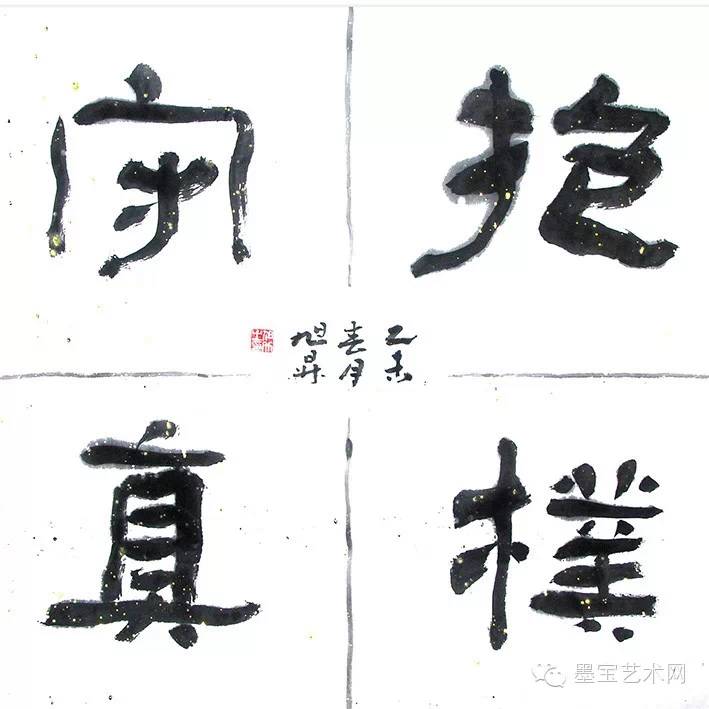 抱樸
守真
乙未
春月
旭昇
墨宝艺术网